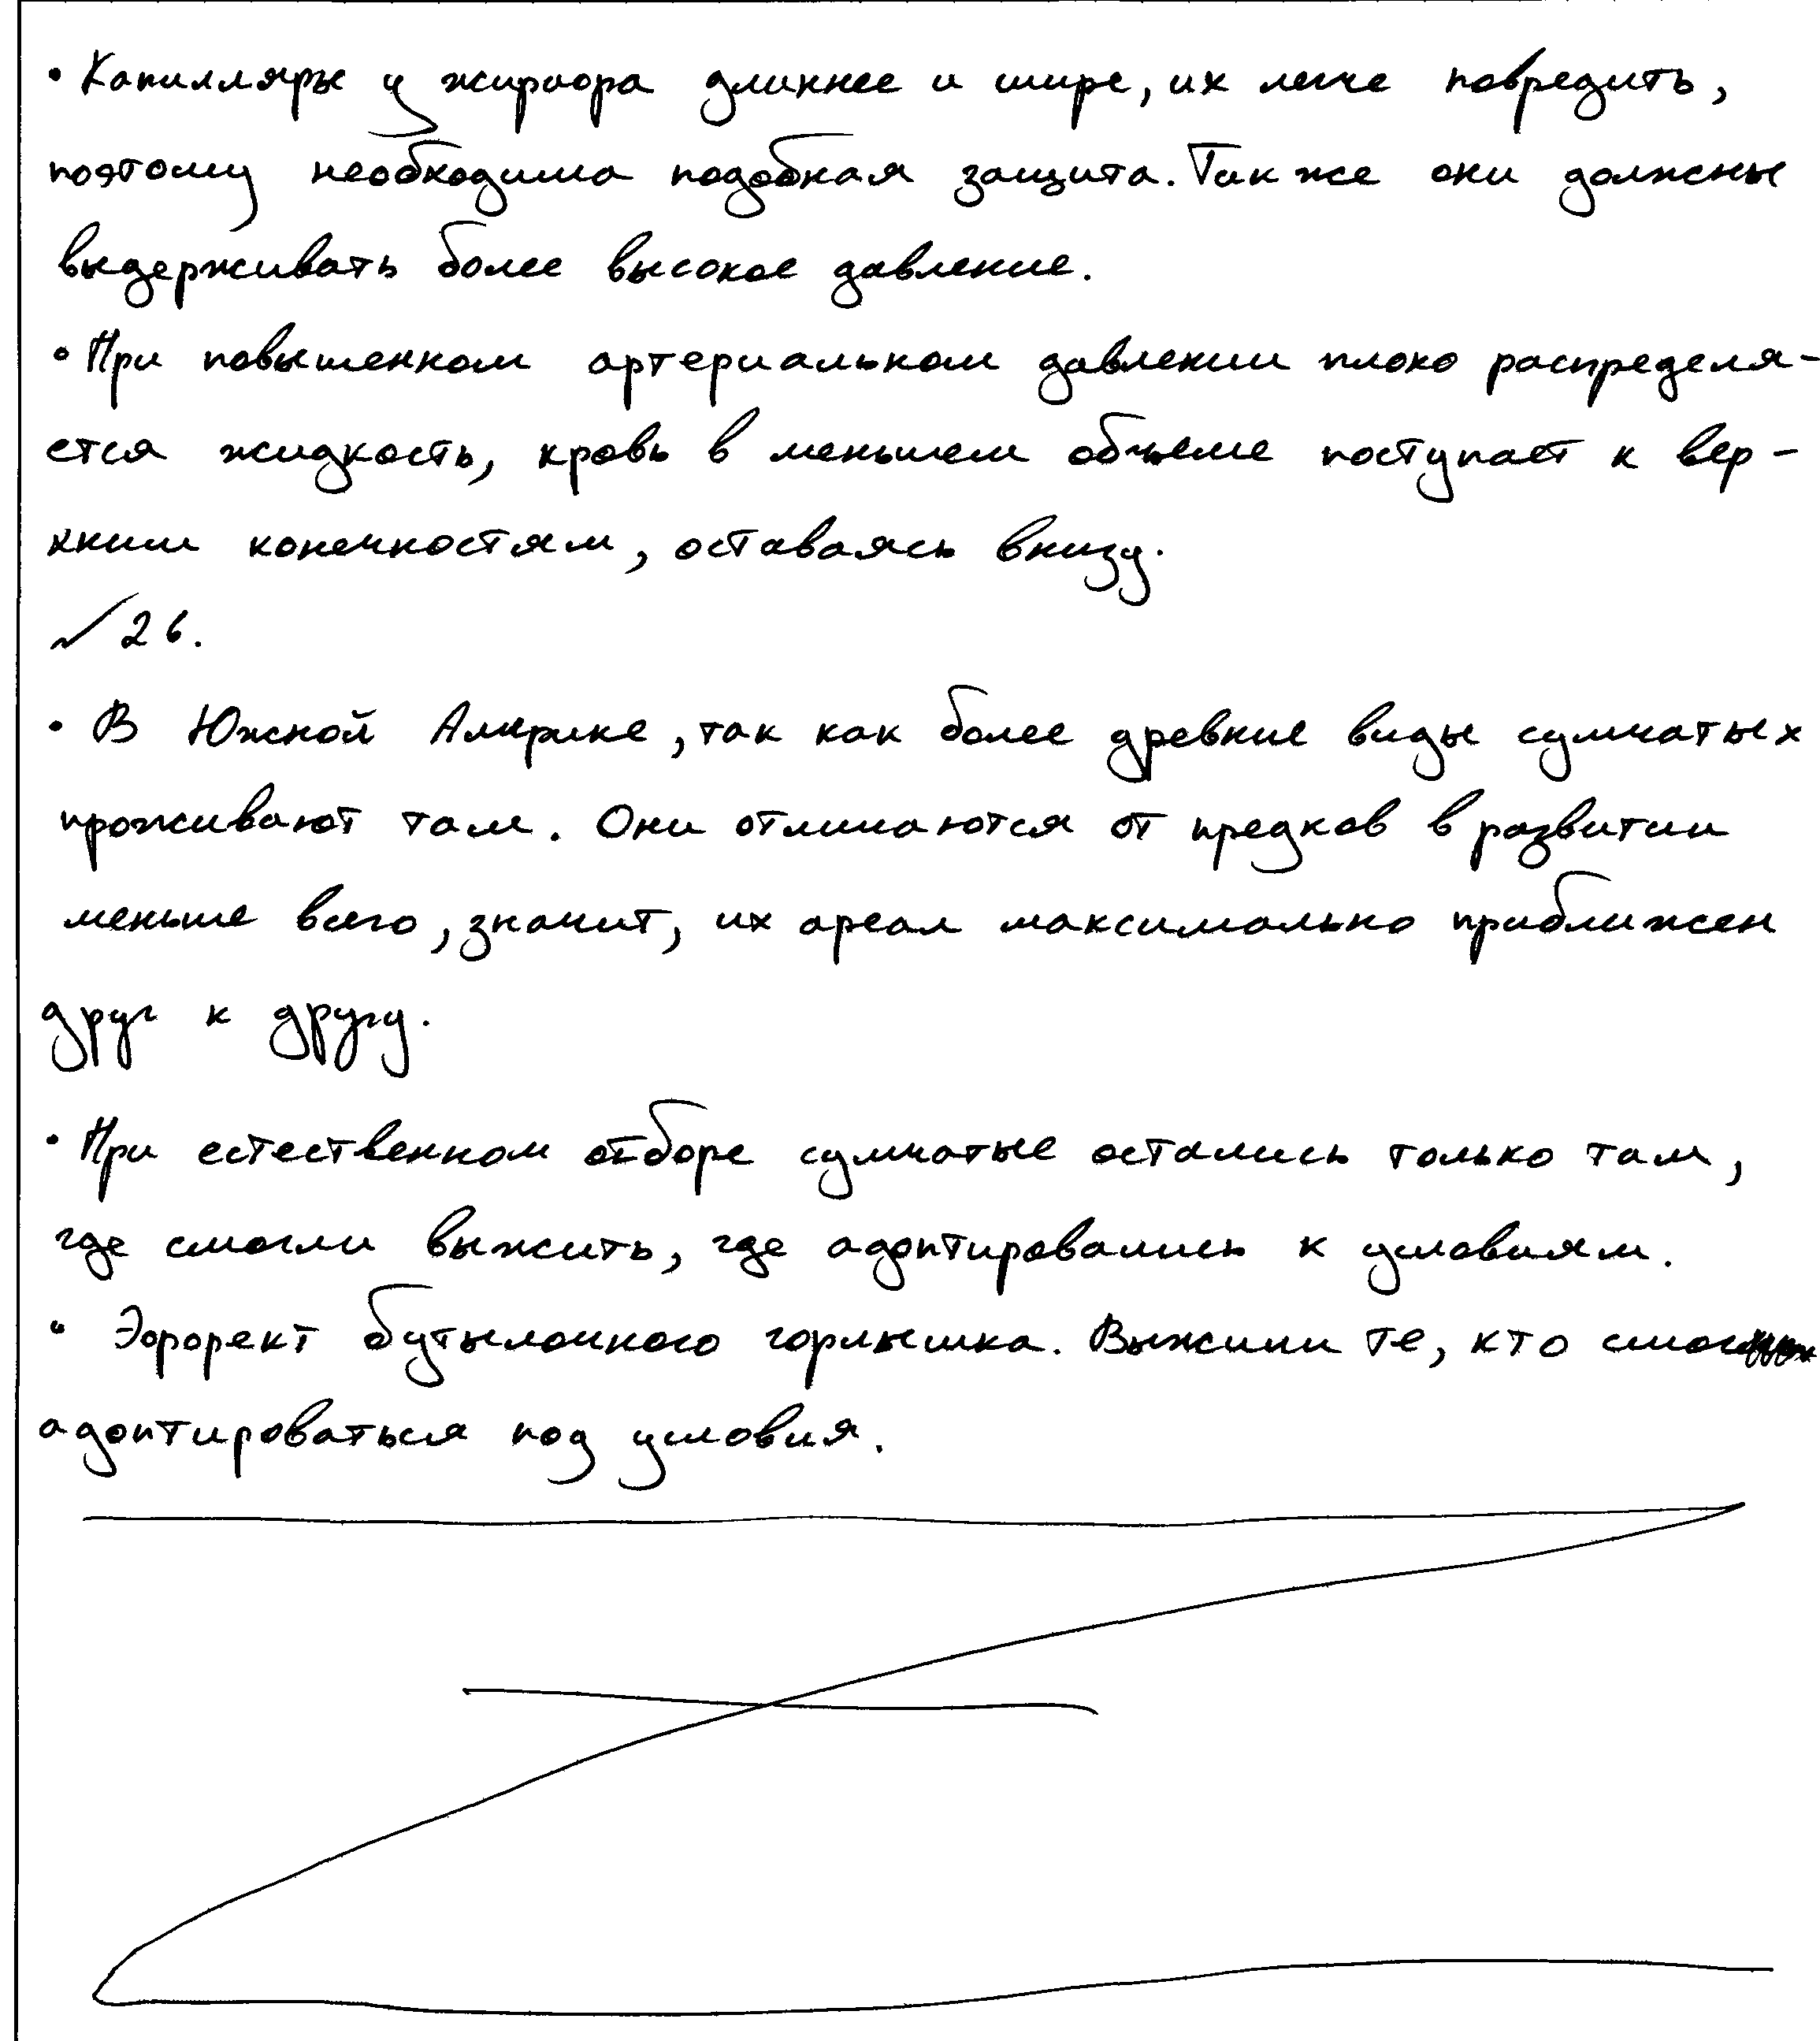 • Капилляры у жирафа длиннее и шире, их легче повредить,
поэтому необходима подобная защита. Так же они должны
выдерживать более высокое давление.
• При повышенном артериальном давлении плохо распределя-
ется жидкость, кровь в меньшем объеме поступает к вер-
хним конечностям, оставаясь внизу.
√26.
• В Южной Америке, так как более древние виды сумчатых
проживают там. Они отличаются от предков в развитии
меньше всего, значит, их ареал максимально приближен
друг к другу.
• При естественном отборе сумчатые остались только там,
где смогли выжить, где адаптировались к условиям.
• Эффект бутылочного горлышка. Выжили те, кто смог
адаптироваться под условия.